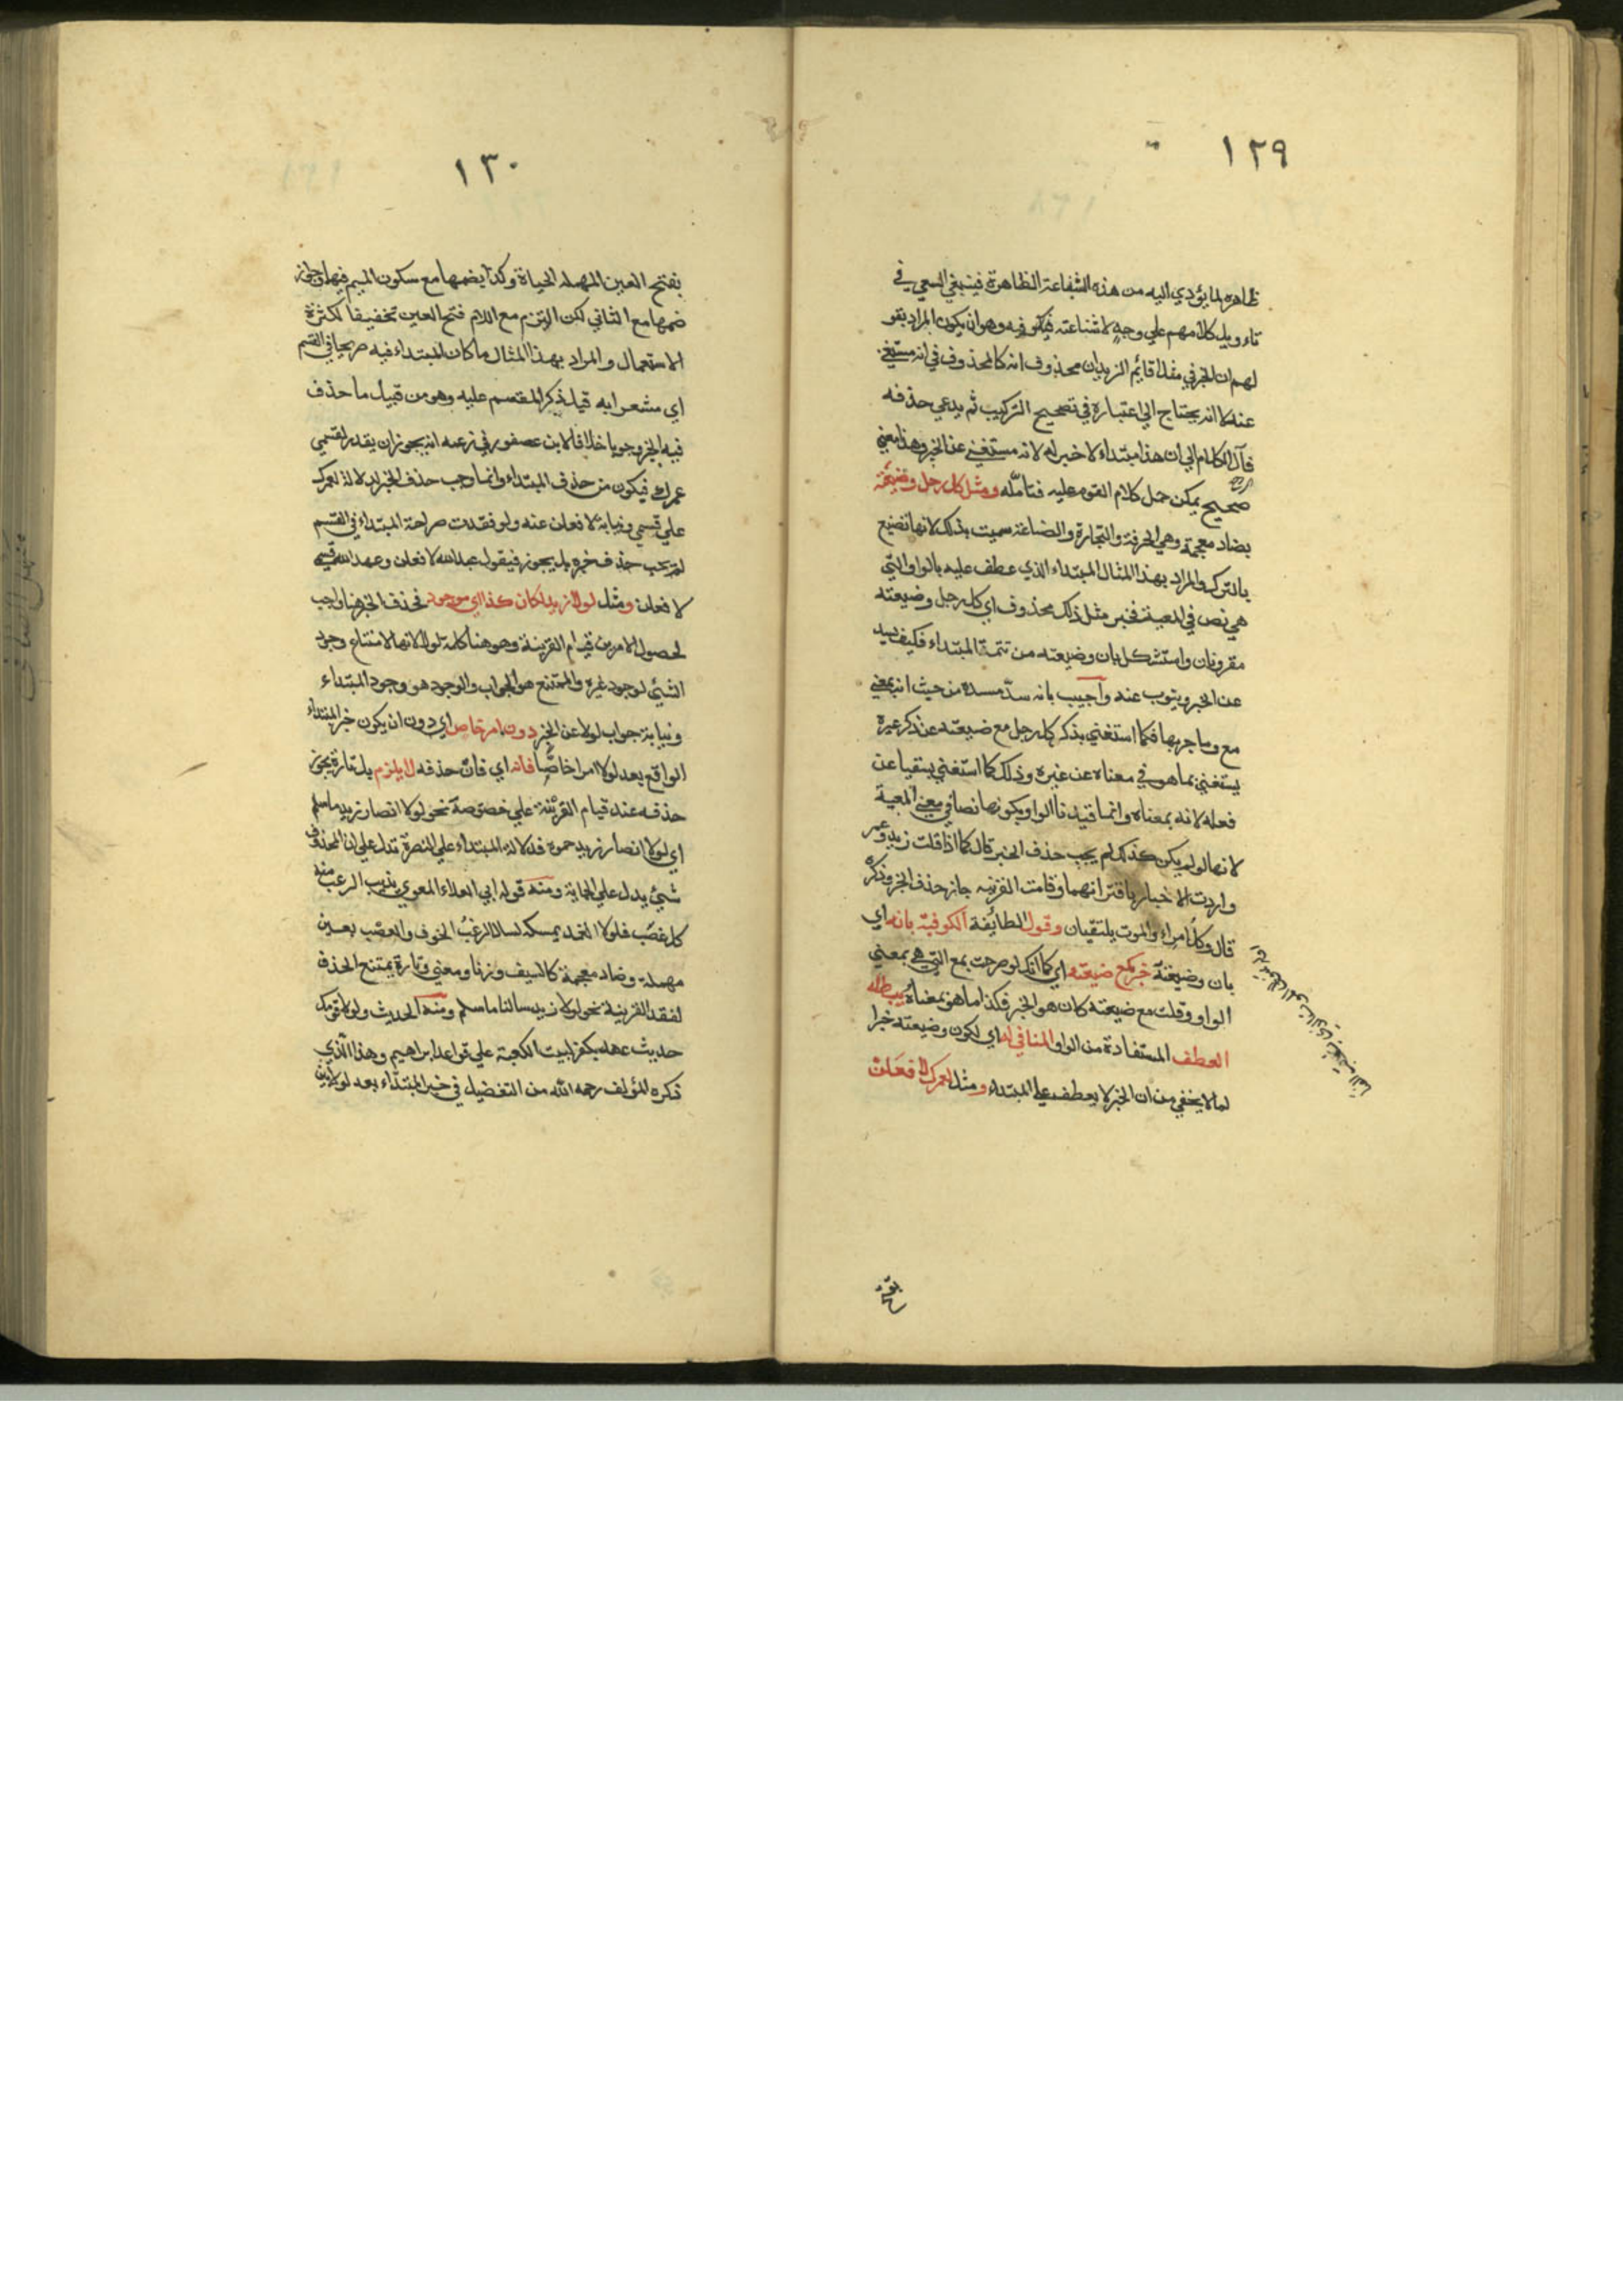 ١٢٩
ظاهره لما يؤدي اليه من هذه الشفاعة الظاهرة فينبغي السعي في
تاءويل كلامهم علي وجه لا شناعته فيه وهو ان يكون المراد بقو
لهم ان الخبر في مثل اقائم الزيدان محذوف انه كالمحذوف في انه مستغني
عنه لا انه يحتاج الي اعتباره في تصحيح التركيب ثم يدعي حذفه
فآل الكلام الي ان هذا مبتداء لا خبر له لانه مستغني عن الخبر وهذا معني
صحيح يمكن حمل كلام القوم عليه فتامله ومثل كل رجل وضيعته
بضاد معجمة وهي الحرفة والتجارة والصناعة سميت بذلك لانها تضيع
بالترك والمراد بهذا المثال المبتداء الذي عطف عليه بالواو التي
هي نص في المعية فخبر مثل ذلك محذوف اي كل رجل وضيعته
مقرونان واستشكل بان وضيعته من تتمة المبتداء فكيف يسد
عن الخبر وينوب عنه واجيب بانه سد مسده من حيث انه بمعني
مع وما جر بها فكما استغني بذكر كل رجل مع ضيعته عن ذكر غيره
يستغني بما هو في معناه عن غيره وذلك كما استغني بسقيا عن
فعله لانه بمعناه وانما قيدنا الواو بكونها نصا في معني المعية
لانها لو لم يكن كذلك لم يجب حذف الخبر قال كما اذا قلت زيد وعمر
واردت الاخبار باقترانهما وقامت القرينه جاز حذف الخبر وذكره
قال وكل امراء والموت يلتقيان وقول الطائفة الكوفية بانه اي
بان وضيعته خبر كمع ضيعته اي كما انك لو صرحت بمع التي هي بمعني
الواو وقلت مع ضيعته كان هو الخبر فكذا ما هو بمعناه يبطله
العطف المستفادة من الواو المنافي له اي لكون وضيعته خبرا
لما لا يخفي من ان الخبر لا يعطف علي المبتداء ومثل لعمرك لافعلن
بفتح
١٣٠
بفتح العين المهملة الحياة وكذا بضمها مع سكون الميم فيها وجاز
ضمها مع الثاني لكن التزم مع اللام فتح العين تخفيفا لكثرة
الاستعمال والمراد بهذا المثال ما كان المبتداء فيه صريحا في القسم
اي مشعرا به قبل ذكر المقسم عليه وهو من قبيل ما حذف
فيه الخبر وجوبا خلافا لابن عصفور في زعمه انه يجوز ان يقدر لقسمي
عمرك فيكون من حذف المبتداء وانما وجب حذف الخبر لدلالة لعمرك
علي قسمي ونيابة لافعلن عنه ولو فقدت صراحة المبتداء في القسم
لم يجب حذف خبره بل يجوز فيقول عهد الله لافعلن وعهد الله قسمي
لافعلن ومثل لولا زيد لكان كذا اي موجود فحذف الخبر هنا واجب
لحصول الامرين قيام القرينة وهو هنا كلمة لولا لانها لامتناع وجود
الشئ لوجود غيره والممتنع هو الجواب والوجود هو وجود المبتداء
ونيابة جواب لولا عن الخبر دون امر خاص اي دون ان يكون خبر المبتداء
الواقع بعد لولا امرا خاصا فانه اي فان حذفه لا يلزم بل تارة يجوز
حذفه عند قيام القرينة علي خصوصه نحو لولا انصار زيد ما سلم
اي لولا انصار زيد حموه فدلالة المبتداء علي النصرة تدل علي ان المحذوف
شئ يدل علي الحماية ومنه قوله ابي العلاء المعري يذيب الرعب منه
كل عضب فلولا الغمد يمسكه لسالا الرعب الخوف والعضب بعين
مهملة وضاد معجمة كالسيف وزنا ومعني وتارة يمتنع الحذف
لفقد القرينة نحو لولا زيد سالنا ما سلم ومنه الحديث ولولا قومك
حديث عهد بكفر لبنيت الكعبة علي قواعد ابراهيم وهذا الذي
ذكره المؤلف رحمه الله من التفضيل في خبر المبتداء بعد لولا بين